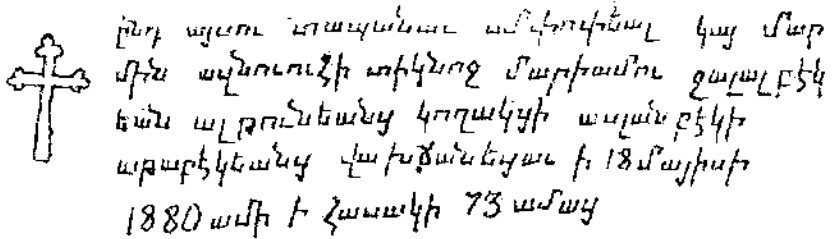 ընդ այսու տապանաւ ամփոփեալ կայ մար
մին ազնուուհի տիկնոջ Մարիամու ջալալբէկ
եան ալթունեանց կողակցի ասլան բէկի
աթաբէկեանց վախճանեցաւ ի 18 մայիսի
1880 ամի ի հասակի 73 ամաց